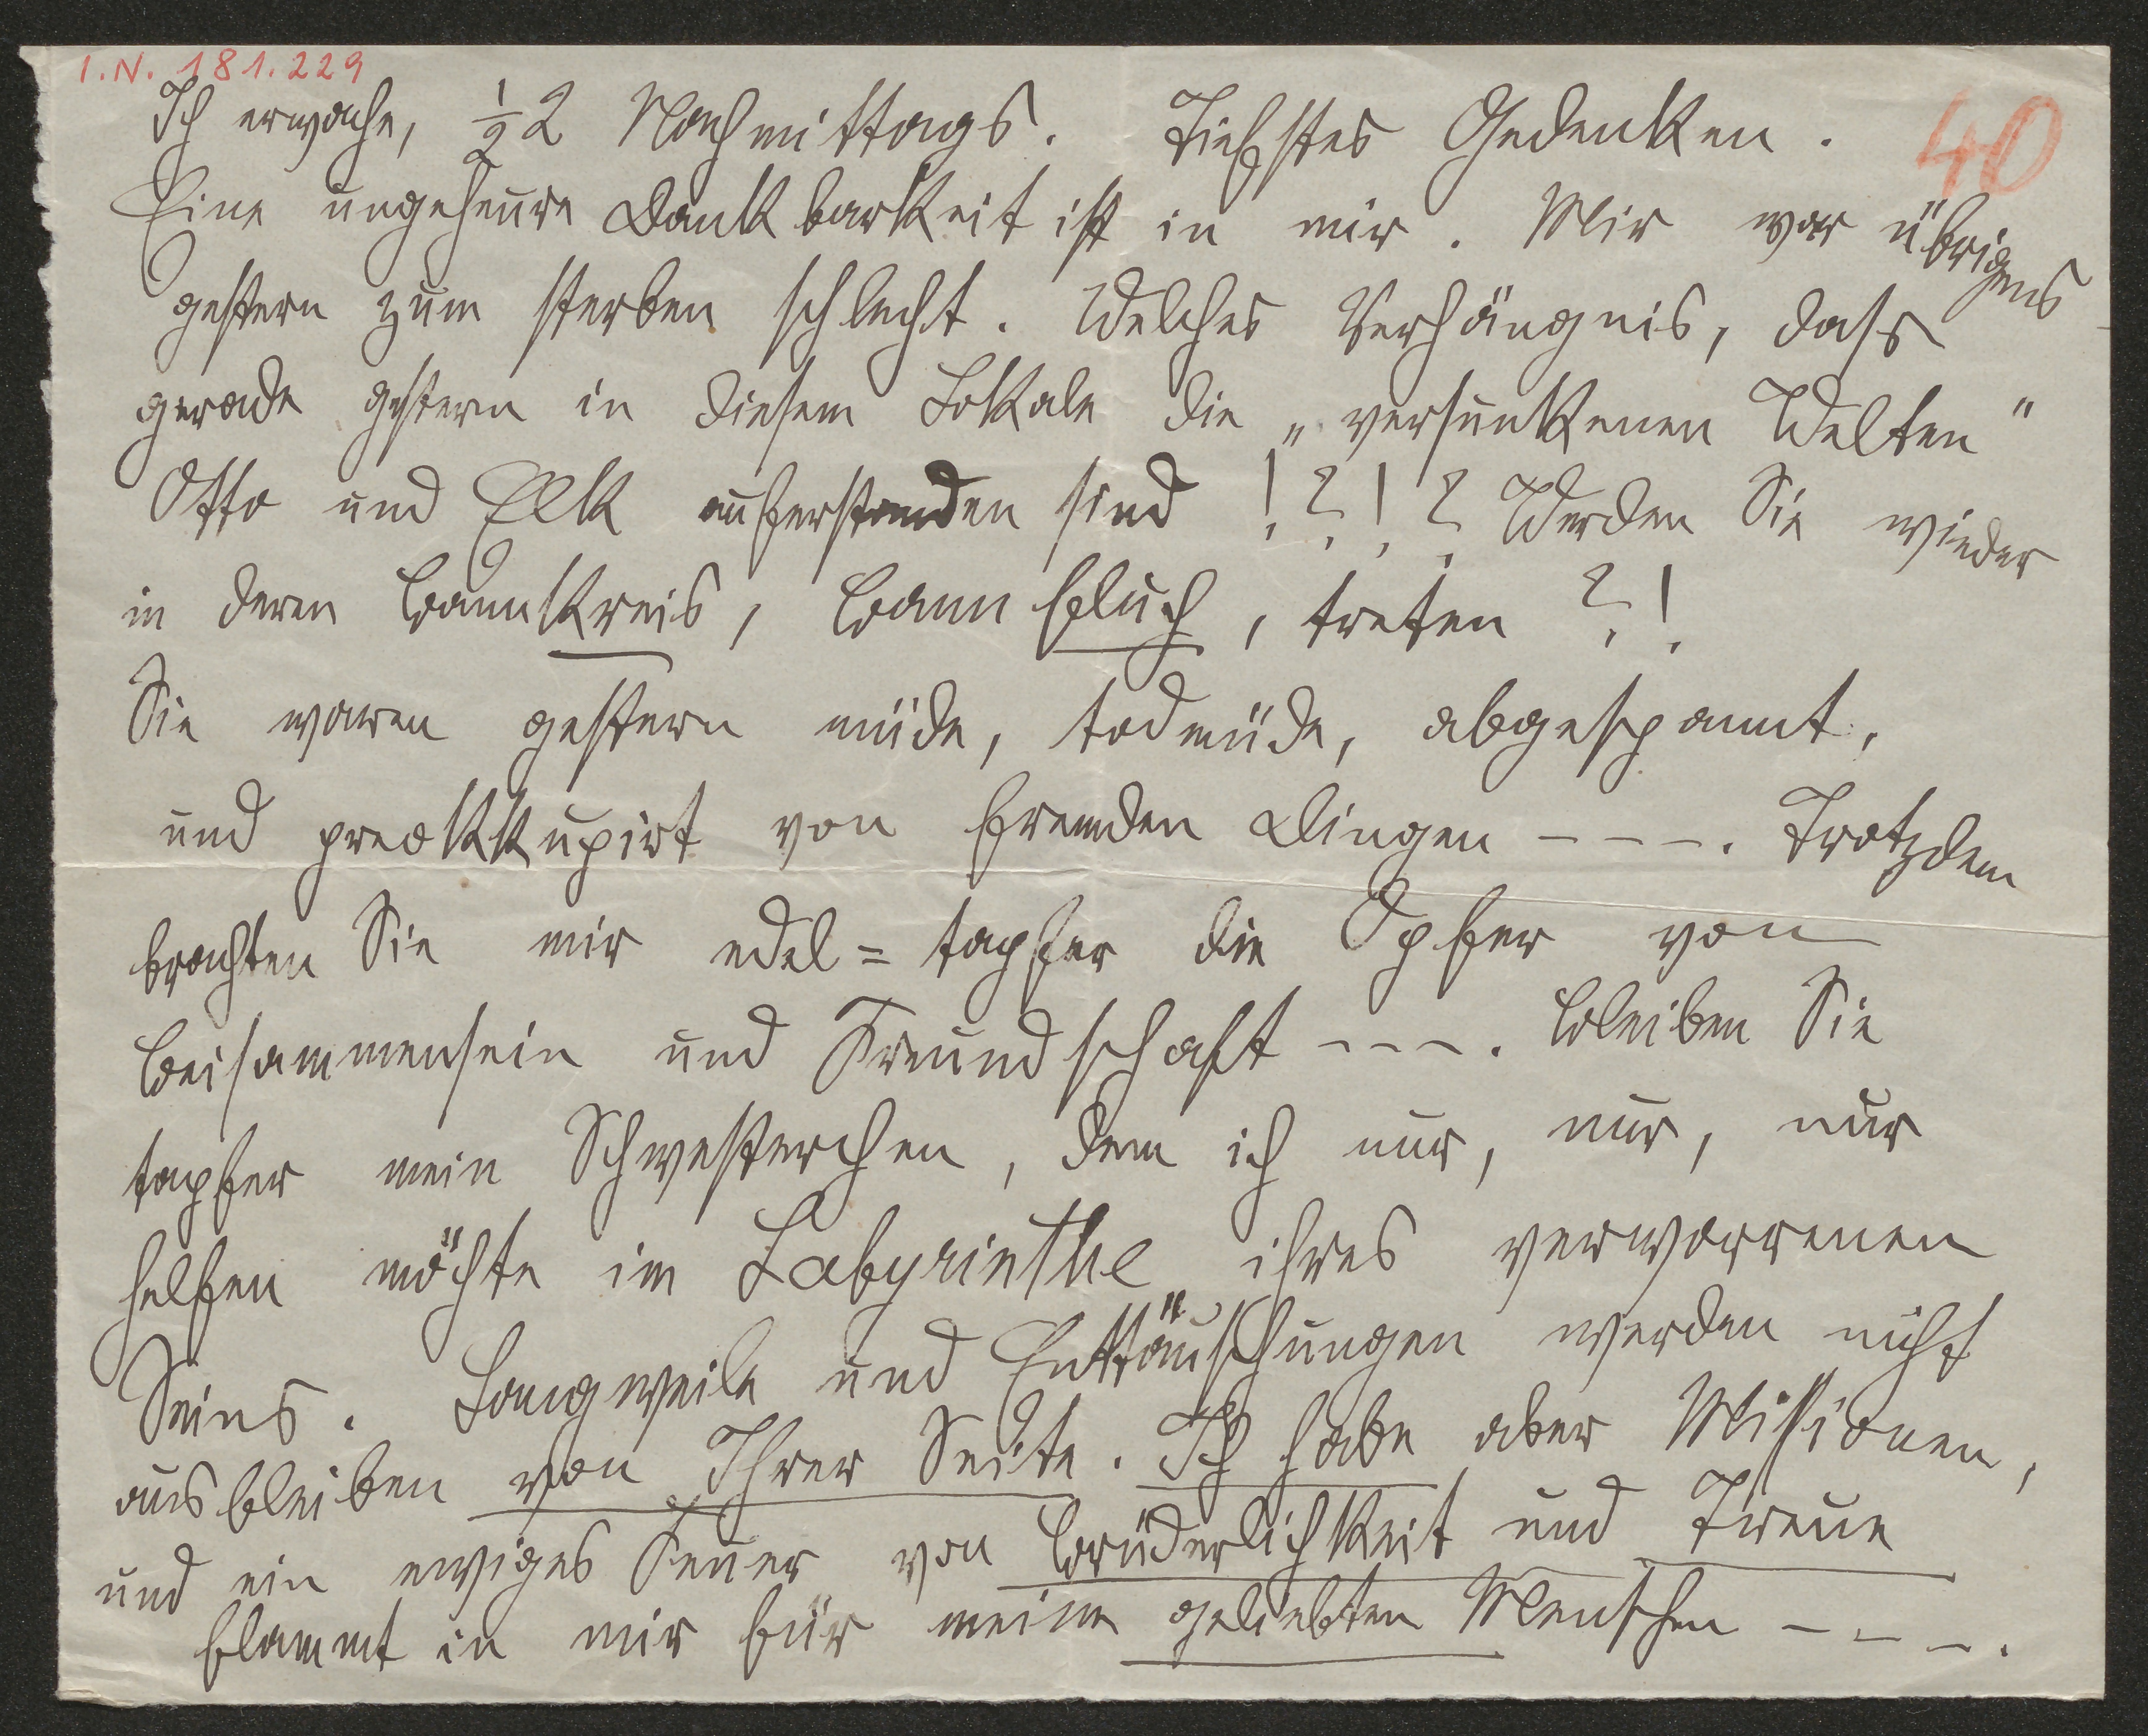 I.N. 181.229
40
Ich erwache, ½2 Nachmittags. Tiefstes Gedenken.
Eine ungeheure Dankbarkeit ist in mir. Mir war übrigens
gestern zum sterben schlecht. Welches Verhängnis, dass
gerade gestern in diesem Lokale die „versunkenen Welten"
Otto und Elk auferstanden sind !?!? Werden Sie wieder
in deren Bannkreis, Bannfluch, treten ?!
Sie waren gestern müde, todmüde, abgespannt,
und preokkupirt von fremden Dingen – – –. Trotzdem
brachten Sie mir edel=tapfer die Opfer von
Beisammensein und Freundschaft – – –. Bleiben Sie
tapfer mein Schwesterchen, dem ich nur, nur, nur
helfen möchte im Labyrinthe ihres verworrenen
Seins. Langweile und Enttäuschungen werden nicht
ausbleiben von Ihrer Seite. Ich habe aber Missionen,
und ein ewiges Feuer von Brüderlichkeit und Treue
flammt in mir für meine geliebten Menschen – – –.